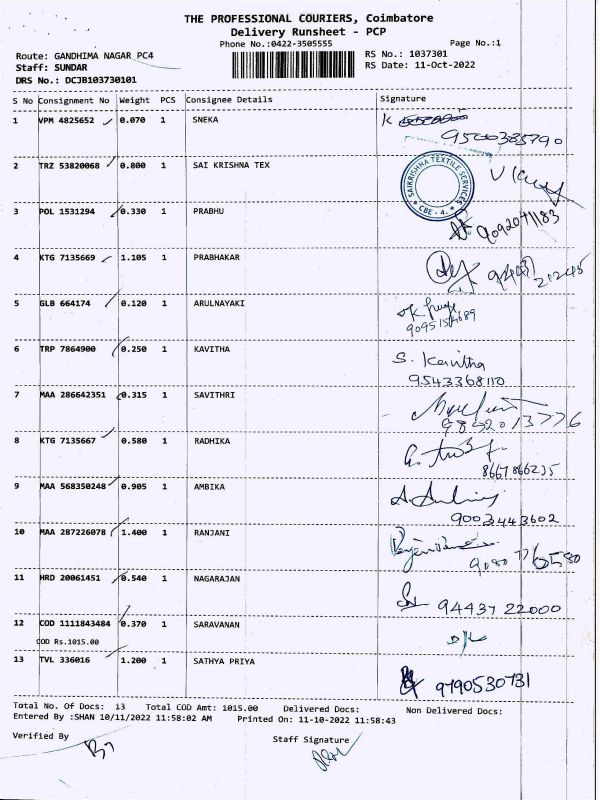 THE PROFESSIONAL COURIERS, Coimbatore
Delivery Runsheet - PCP
Phone No.:0422-3505555
Page No.:1
Route: GANDHIMA NAGAR PC4
RS No.: 1037301
Staff: SUNDAR
RS Date: 11-Oct-2022
DRS No.: DCJB103730101
S No Consignment No Weight PCS Consignee Details Signature
1 VPM 4825652 0.070 1 SNEKA K 9500385790
2 TRZ 53820068 0.800 1 SAI KRISHNA TEX SAIKRISHNA TEXTILE SERVICES * CBE - 4. *
3 POL 1531294 0.330 1 PRABHU 9092041183
4 KTG 7135669 1.105 1 PRABHAKAR
5 GLB 664174 0.120 1 ARULNAYAKI
6 TRP 7864900 0.250 1 KAVITHA S. Kavitha
9543368110
7 MAA 286642351 0.315 1 SAVITHRI
9842013776
8 KTG 7135667 0.580 1 RADHIKA
8667866235
9 MAA 568350248 0.905 1 AMBIKA
9003443602
10 MAA 287226078 1.400 1 RANJANI
11 HRD 20061451 0.540 1 NAGARAJAN 94437 22000
12 COD 1111843484 0.370 1 SARAVANAN
COD Rs.1015.00
13 TVL 336016 1.200 1 SATHYA PRIYA 9790530731
Total No. Of Docs: 13 Total COD Amt: 1015.00 Delivered Docs: Non Delivered Docs:
Entered By :SHAN 10/11/2022 11:58:02 AM Printed On: 11-10-2022 11:58:43
Verified By
Staff Signature